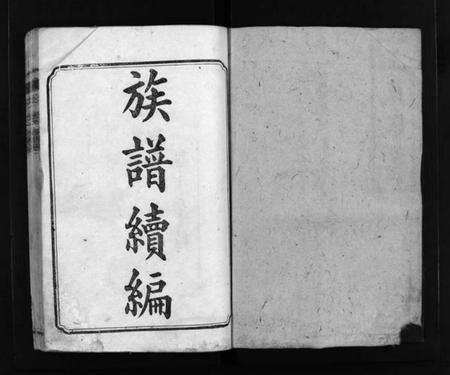 族譜續編